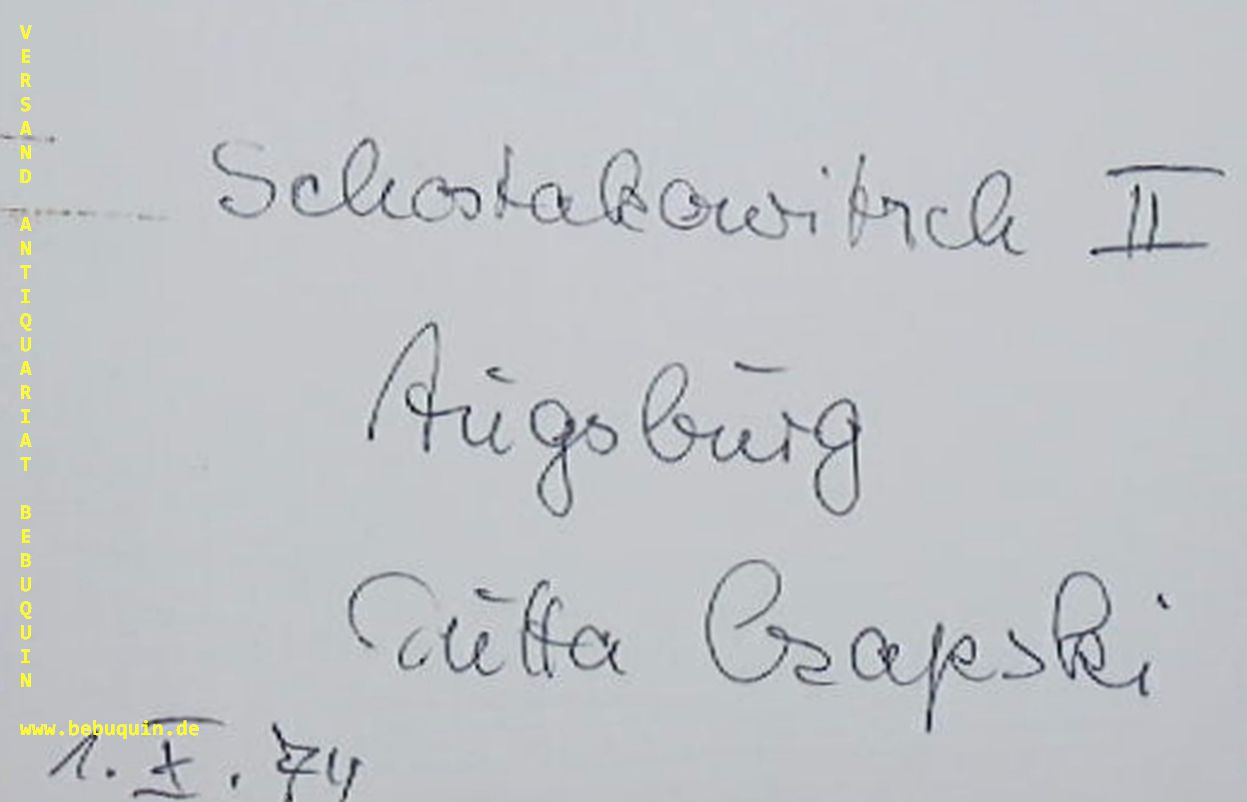 VERSAND ANTIQUARIAT BEBUQUIN
www.bebuquin.de
Schostakowitsch II
Augsburg
Jutta Czapski
1. X. 74